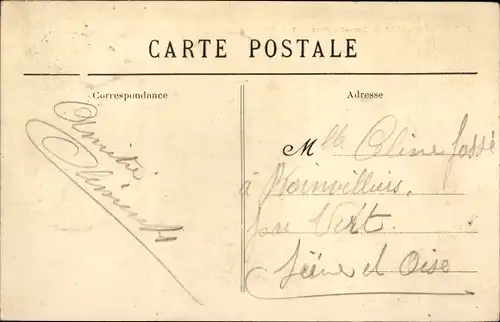 CARTE POSTALE
Correspondance
Adresse
Amitié
Clémence
Mlle Cline Fossé
à Boinvilliers,
par Vert
Seine et Oise